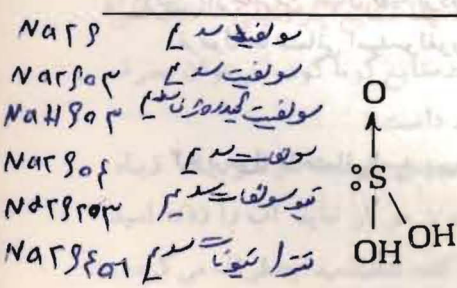 Na۲S سولفید سدیم
Na۲SO۳ سولفیت سدیم
NaHSO۳ سولفیت هیدروژن سدیم
Na۲SO۴ سولفات سدیم
Na۲S۲O۳ تیوسولفات سدیم
Na۲S۴O۶ تترا تیونات سدیم
O
S
OH OH